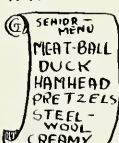 SENIOR -
MENU
MEAT-BALL
DUCK
HAMHEAD
PRETZELS
STEEL -
WOOL
CREAMY